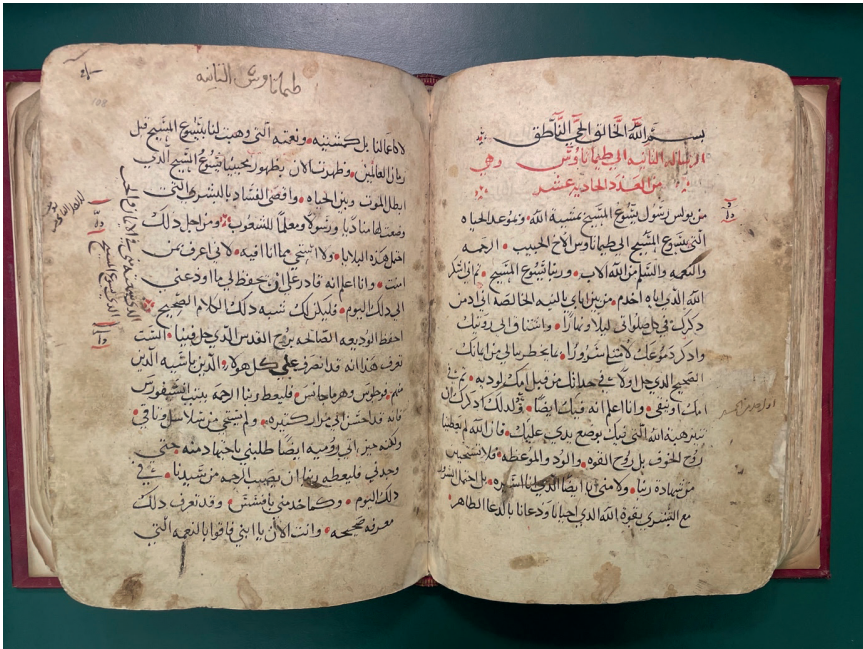 بسم الله الخالق الحي الناطق
الرساله الثانيه الي طيماتاوس وهي
من العدد الحاديه عشر
من بولس رسول يسوع المسيح بمشية الله وموعد الحياه
التي بيسوع المسيح الي طيماتاوس الاخ الحبيب الرحمه
والنعمه والسلم من الله الاب وربنا يسوع المسيح ثم اني اشكر
الله الذي اياه اخدم من بين اباي بالنيه الخالصه اني ادمن
دكرك في صلواتي ليلا ونهارا واشتاق الي رويتك
وادكر دموعك لامتلي سرورا بما يخطر ببالي من ايمانك
الصحيح الذي حل اولا في جدتك من قبل امك لوديه ثم في
امك اونيقي وانا اعلم انه فيك ايضا ولذلك ادكرك ان
تثير هبة الله التي فيك بوضع يدي عليك فان الله لم يعطنا
روح الخوف بل روح القوه والود والموعظه فلا تستحيين
من شهادة ربنا ولا مني ايضا الذي انا اسيره بل احتمل الشرور
مع البشري بقوة الله الذي احيانا ودعانا بالدعا الطاهر
طيماتاوس الثانيه
لا كاعمالنا بل كمشيته ونعمته التي وهبت لنا بيسوع المسيح قبل
زمان العالمين وظهرت الان بظهور محيينا يسوع المسيح الذي
ابطل الموت وبين الحياه واقصا الفساد بالبشري التي
وضعت لها مناديا ورسولا ومعلما للشعوب ومن اجل ذلك
احتمل هذه البلايا ولا استحي مما انا فيه لاني اعرف بمن
امنت وانا اعلم انه قادر علي ان يحفظ لي ما اودعني
الي ذلك اليوم فليكن لك شبه ذلك الكلام الصحيح
احفظ الوديعه الصالحه بروح القدس الذي حل فينا الست
تعرف هذا انه قد انصرف عني كل هولا الذين باسيه الذين
منهم فوجلوس وهرماجانس فليعط ربنا الرحمه بيت انسيفورس
فانه قد احسن الي مرار كثيره ولم يستحي من سلاسل وثاقي
ولكنه حين اتي روميه ايضا طلبني باجتهاد منه حتي
وجدني فليعطه ربنا ان يصيب الرحمه من سيدنا في
ذلك اليوم وكما خدمني بافسس وقد تعرف ذلك
معرفه صحيحه وانت الان يا ابني فاقوا بالنعمه التي
الذي بيسوع المسيح